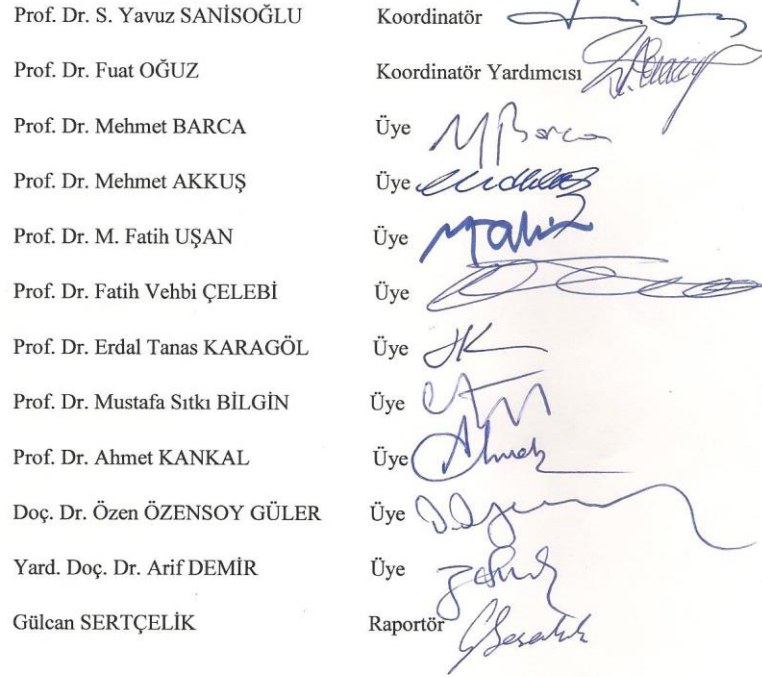 Prof. Dr. S. Yavuz SANİSOĞLU Koordinatör
Prof. Dr. Fuat OĞUZ Koordinatör Yardımcısı
Prof. Dr. Mehmet BARCA Üye M Barca
Prof. Dr. Mehmet AKKUŞ Üye
Prof. Dr. M. Fatih UŞAN Üye
Prof. Dr. Fatih Vehbi ÇELEBİ Üye
Prof. Dr. Erdal Tanas KARAGÖL Üye
Prof. Dr. Mustafa Sıtkı BİLGİN Üye
Prof. Dr. Ahmet KANKAL Üye Ahmet
Doç. Dr. Özen ÖZENSOY GÜLER Üye
Yard. Doç. Dr. Arif DEMİR Üye
Gülcan SERTÇELİK Raportör